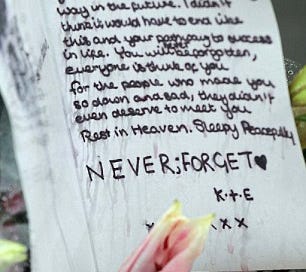 way in the future. I didn't
think it would have to end like
this and your pathway to success
in life. You will never be forgotten,
everyone is think of you
for the people who made you
so down and sad, they didn't
even deserve to meet you
Rest in Heaven. Sleepy Peacefully
NEVER;FORGET♥
K+E
x x x x